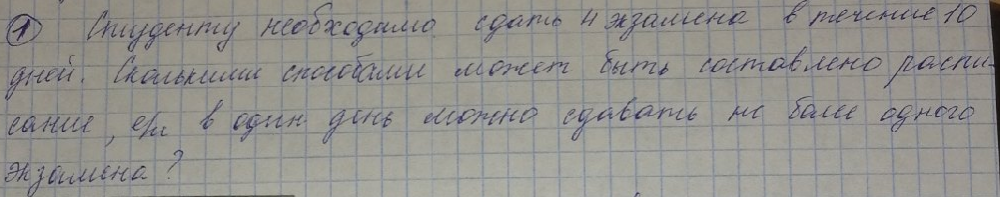 ① Студенту необходимо сдать 4 экзамена в течение 10
дней. Сколькими способами может быть составлено распи-
сание, если в один день можно сдавать не более одного
экзамена?